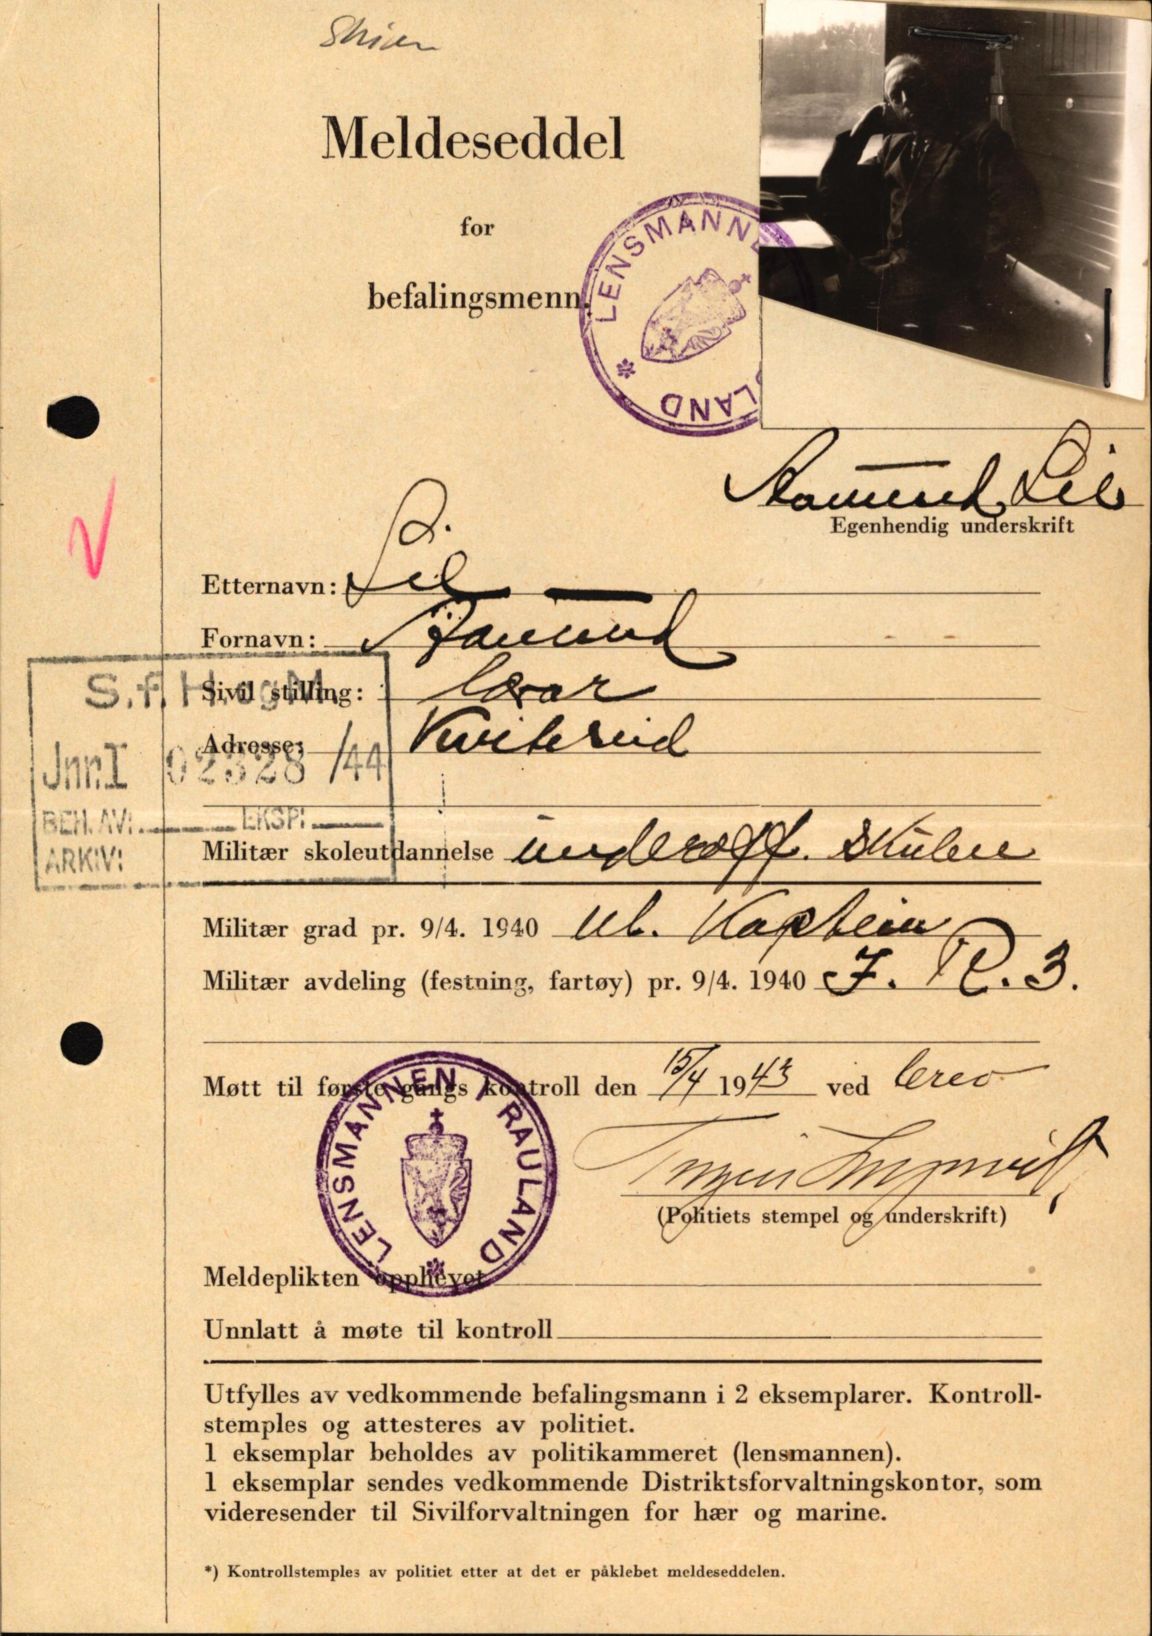 Skien
Meldeseddel
for
befalingsmenn.
LENSMANNEN I RAULAND
Aamund Lil
Egenhendig underskrift
Etternavn: Lil
Fornavn: Aamund
Sivil stilling: lærar
Adresse: Kviteseid
S.f.H.ogM.
Jnr.I 02328/44
BEH. AV: EKSP:
ARKIV:
Militær skoleutdannelse underoff. skulen
Militær grad pr. 9/4. 1940 Kaptein
Militær avdeling (festning, fartøy) pr. 9/4. 1940 I. R. 3.
Møtt til første gangs kontroll den 15/4 1943 ved brev
LENSMANNEN I RAULAND
(Politiets stempel og underskrift)
Meldeplikten opphevet
Unnlatt å møte til kontroll
Utfylles av vedkommende befalingsmann i 2 eksemplarer. Kontroll-
stemples og attesteres av politiet.
1 eksemplar beholdes av politikammeret (lensmannen).
1 eksemplar sendes vedkommende Distriktsforvaltningskontor, som
videresender til Sivilforvaltningen for hær og marine.
*) Kontrollstemples av politiet etter at det er påklebet meldeseddelen.